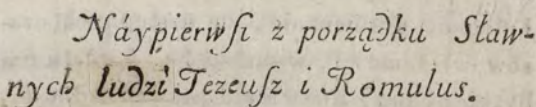 Náypierwſi z porządku Sław-
nych ludzi Tezeuſz i Romulus.